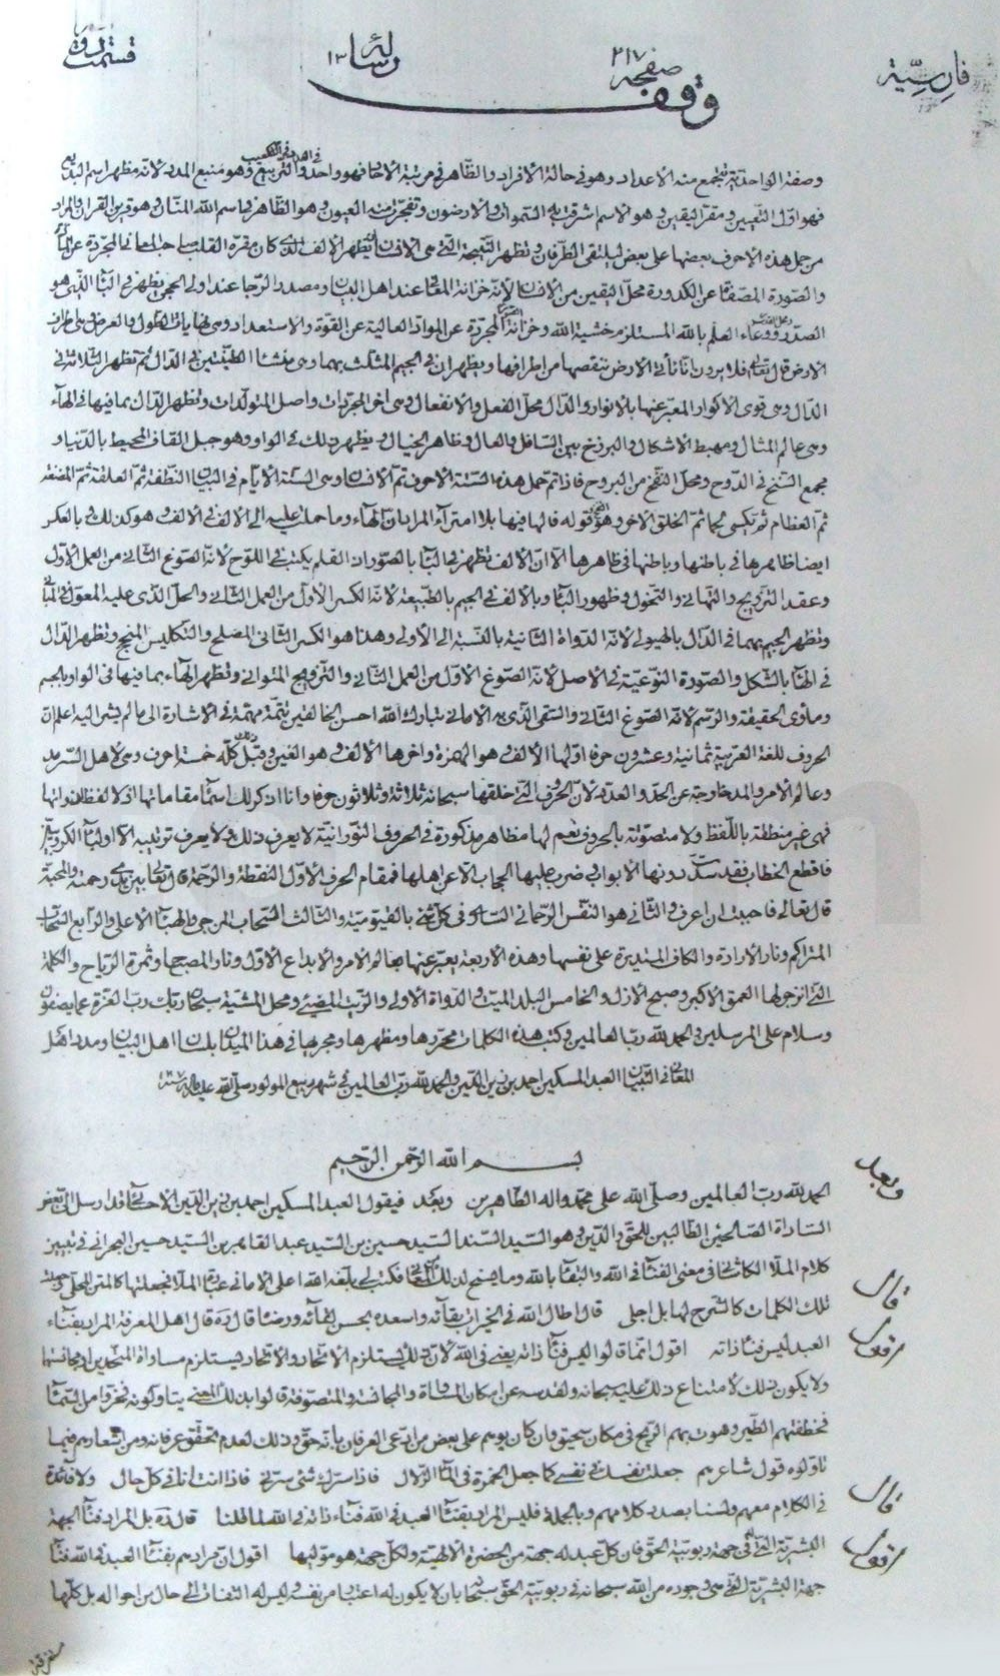 فارسية
صفحه ٢١٧
رسالة ١٣
قسمت دوم
وقف
وصفة الواحدية تجتمع منه الأعداد وهو في حالة الأفراد والظاهر في مرتبة فهو واحد وهو منبع المدد لأنه مظهر اسم البديع
فهو أول التعيين ومقر اليقين وهو الاسم أشرقت به السموات والأرضون وتفجرت منه العيون وهو الظاهر في اسم الله المنان وهو قرين القران والمراد
من جمل هذه الأحرف بعضها على بعض ليلتقي الطرفان وتظهر النتيجة التي هي الانسان
والصورة المصفاة عن الكدورة محل اليقين من الانسان لأنه خزانة المعاني عند أهل البيان ومصدر الرجا عند أولي الحجى يظهر في البآء الذي هو
الصدر ووعاء العلم بالله المستلزم خشية الله وخزانة المجردة عن المواد العالية عن القوة والاستعداد
الأرض قال تعالى أفلا يرون أنا نأتي الأرض ننقصها من أطرافها ويظهران في الجيم المثلث بهما وهي منشأ في الدال ثم تظهر الثلاثة في
الدال وهي قوى الأكوار المعبر عنها بالأنوار والدال محل الفعل والانفعال وهي آخر المجردات وأصل المتولدات وتظهر الدال بما فيها في الهآء
وهي عالم المثال ومهبط الأشكال والبرزخ بين السافل والعال وظاهر الخيال ويظهر ذلك في الواو وهو جبل القاف المحيط بالدنيا و
مجمع في الدوح ومحل النفخ من الروح فاذا تم حمل هذه الستة الأحرف تم الانسان وهي الستة الأيام في البيان النطفة ثم العلقة ثم المضغة
ثم العظام ثم تكسى لحما ثم الخلق الآخر وهو قوله فالهآ فيها بلا امتراء وما حملت عليه الى الألف في الألف وهو كذلك وبالعكس
أيضا ظاهرها في باطنها وباطنها في ظاهرها الا ان الألف تظهر في البآء بالصور ان القلم يكتب في اللوح لأنه الصوغ الثاني من العمل الأول
وعقد التزويج والتهاني والتحول وظهور البآء وبالألف في الجيم بالطبيعة لأنه الكسر الأول من العمل الثاني والحل الذي عليه المعول
وتظهر الجيم بهما في الدال بالهيولى لأنه الدواة الثانية بالنسبة الى الأولى وهذا هو الكسر الثاني المصلح والتكليس المنجح وتظهر الدال
في الهآء بالشكل والصورة النوعية في الأصل لأنه الصوغ الأول من العمل الثاني والتزويج المتواني وتظهر الهآء بما فيها في الواو بالجسم
ومأوى الحقيقة والرسم لأنه الصوغ الثاني والسقي الذي به الأماني تبارك الله أحسن الخالقين تتمة مهمة في الاشارة الى ما لم يشر اليه اعلم ان
الحروف للغة العربية ثمانية وعشرون حرفا أولها الألف وهو الهمزة وآخرها الألف وهو الغين وقبل كله خمسة أحرف وهي لأهل السرمد
وعالم الأمر والمدد خارجة عن الحد والعدد لأن الحروف التي خلقها سبحانه ثلاثة وثلاثون حرفا وانا اذكر لك أسماء مقاماتها اذ لا لفظ لذواتها
فهي غير منطقة باللفظ ولا متصوتة بالحروف نعم لها مظاهر مذكورة في الحروف النورانية لا يعرف ذلك ولا يعرف ترتيبه الا أولئآء
فاقطع الخطاب فقد سدت دونها الأبواب وضرب عليها الحجاب الا عن أهلها فمقام الحرف الأول النقطة والرحمة قال تعالى بين يدي رحمته والمحبة
قال تعالى فاحببت ان اعرف والثاني هو النفس الرحماني الساري في كل شئ بالقيومية والثالث السحاب المزجى والهبآء الأعلى والرابع السحاب
المتراكم ونار الارادة والكاف المستديرة على نفسها وهذه الأربعة يعبر عنها بعالم الأمر والابداع الأول ونار المصباح وثمرة الرياح والكلمة
التي انزجر لها العمق الأكبر وصبح الأزل والخامس البلد الميت والدواة الأولى والزيت المضيئ ومحل المشية سبحان ربك رب العزة عما يصفون
وسلام على المرسلين والحمد لله رب العالمين وكتب هذه الكلمات محررها ومظهرها ومجريها في هذا الميدان بلسان أهل البيان ومدد أهل
المعاني التبيان العبد المسكين احمد بن زين الدين والحمد لله رب العالمين في شهر ربيع المولود صلى الله عليه وآله
بسم الله الرحمن الرحيم
وبعد
الحمد لله رب العالمين وصلى الله على محمد وآله الطاهرين وبعد فيقول العبد المسكين احمد بن زين الدين الأحسائي قد أرسل الي بعض
السادة الصالحين الطالبين للحق والدين وهو السيد السند السيد حسين بن السيد عبد القاهر بن السيد حسين البحراني في تبيين
كلام الملا الكاشاني في معنى الفنآء في الله والبقآء بالله وما يصلح لذلك فكتب لي بلغه الله أعلى الأماني عبارة الملا فجعلتها كالمتن
قال
تلك الكلمات كالشرح لها بل أجلى قال أطال الله في الخير بقآئه وأسعده بحسن لقآئه ورضاه قال ره قال أهل المعرفة المراد بفنآء
أقول
العبد ليس فنآء ذاته أقول انما قالوا ليس فنآء ذاته يعني في الله لأن ذلك يستلزم الاتحاد والاتحاد يستلزم مساواة المتحدين أو مجانستهما
ولا يكون ذلك لامتناع ذلك عليه سبحانه ولقدسه عن امكان المساواة والمجانسة والمتصوفة قالوا بذلك المعنى خر من السمآء
فتخطفتهم الطير وهوت بهم الريح في مكان سحيق وان كان يوهم على بعض من ادعى العرفان بأنه حق وذلك لعدم تحقق عرفانه ومن أشعارهم فيما
تأولوه قول شاعرهم جعلت نفسك في نفسي كما جعل الخمرة في المآء الزلال فاذا مسك شئ مسني فاذا أنت أنا في كل حال ولا فائدة
قال
في الكلام معهم ولسنا بصدد كلامهم وبالجملة فليس المراد بفنآء العبد في الله فنآء ذاته في الله لما قلنا قال ره بل المراد فنآء الجهة
أقول
البشرية التي له في جهة ربوبية الحق فان كل عبد له جهة من الحضرة الالهية ولكل جهة هو موليها أقول ان مرادهم بفنآء العبد في الله فنآء
جهة البشرية التي هي وجوده من الله سبحانه في ربوبية الحق سبحانه بان لا يكون له اعتبار من نفسه وليس له التفات الى حال من أحواله بل كلها